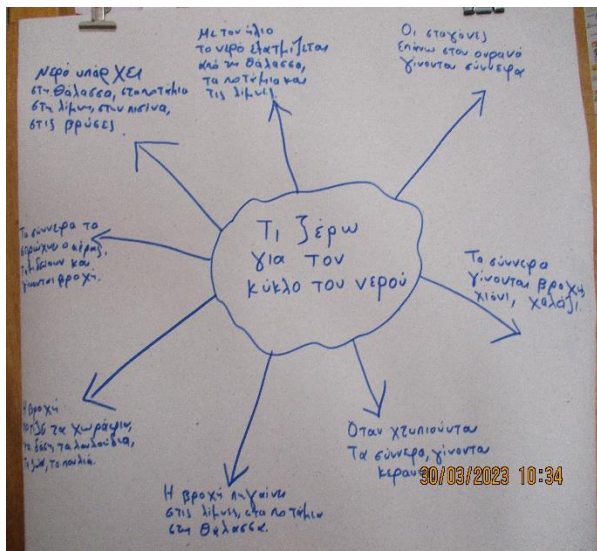 Τι ξέρω
για τον
κύκλο του νερού
Νερό υπάρχει
στη θάλασσα, στα ποτάμια
στη λίμνη, στην πισίνα,
στις βρύσες
Με τον ήλιο
το νερό εξατμίζεται
από τη θάλασσα,
τα ποτάμια και
τις λίμνες.
Οι σταγόνες
επάνω στον ουρανό
γίνονται σύννεφα
Τα σύννεφα
γίνονται βροχή,
χιόνι, χαλάζι.
Όταν χτυπιούνται
Τα σύννεφα, γίνονται
30/03/2023 10:34
Η βροχή πηγαίνει
στις λίμνες, στα ποτάμια
στη θάλασσα.
Η βροχή
τα χωράφια,
τα δάση, τα λουλούδια,
τα ζώα, τα πουλιά.
Τα σύννεφα τα
σπρώχνει ο αέρας,
και
γίνονται βροχή.